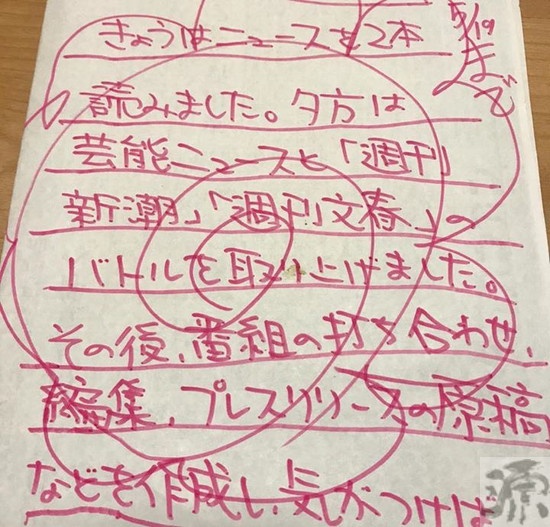 きょうはニュースを2本
5/19まで
読みました。夕方は
芸能ニュースと「週刊
新潮」「週刊文春」の
バトルを取り上げました。
その後、番組の打ち合わせ、
編集、プレスリリースの原稿
などを作成し、気がつけば
源